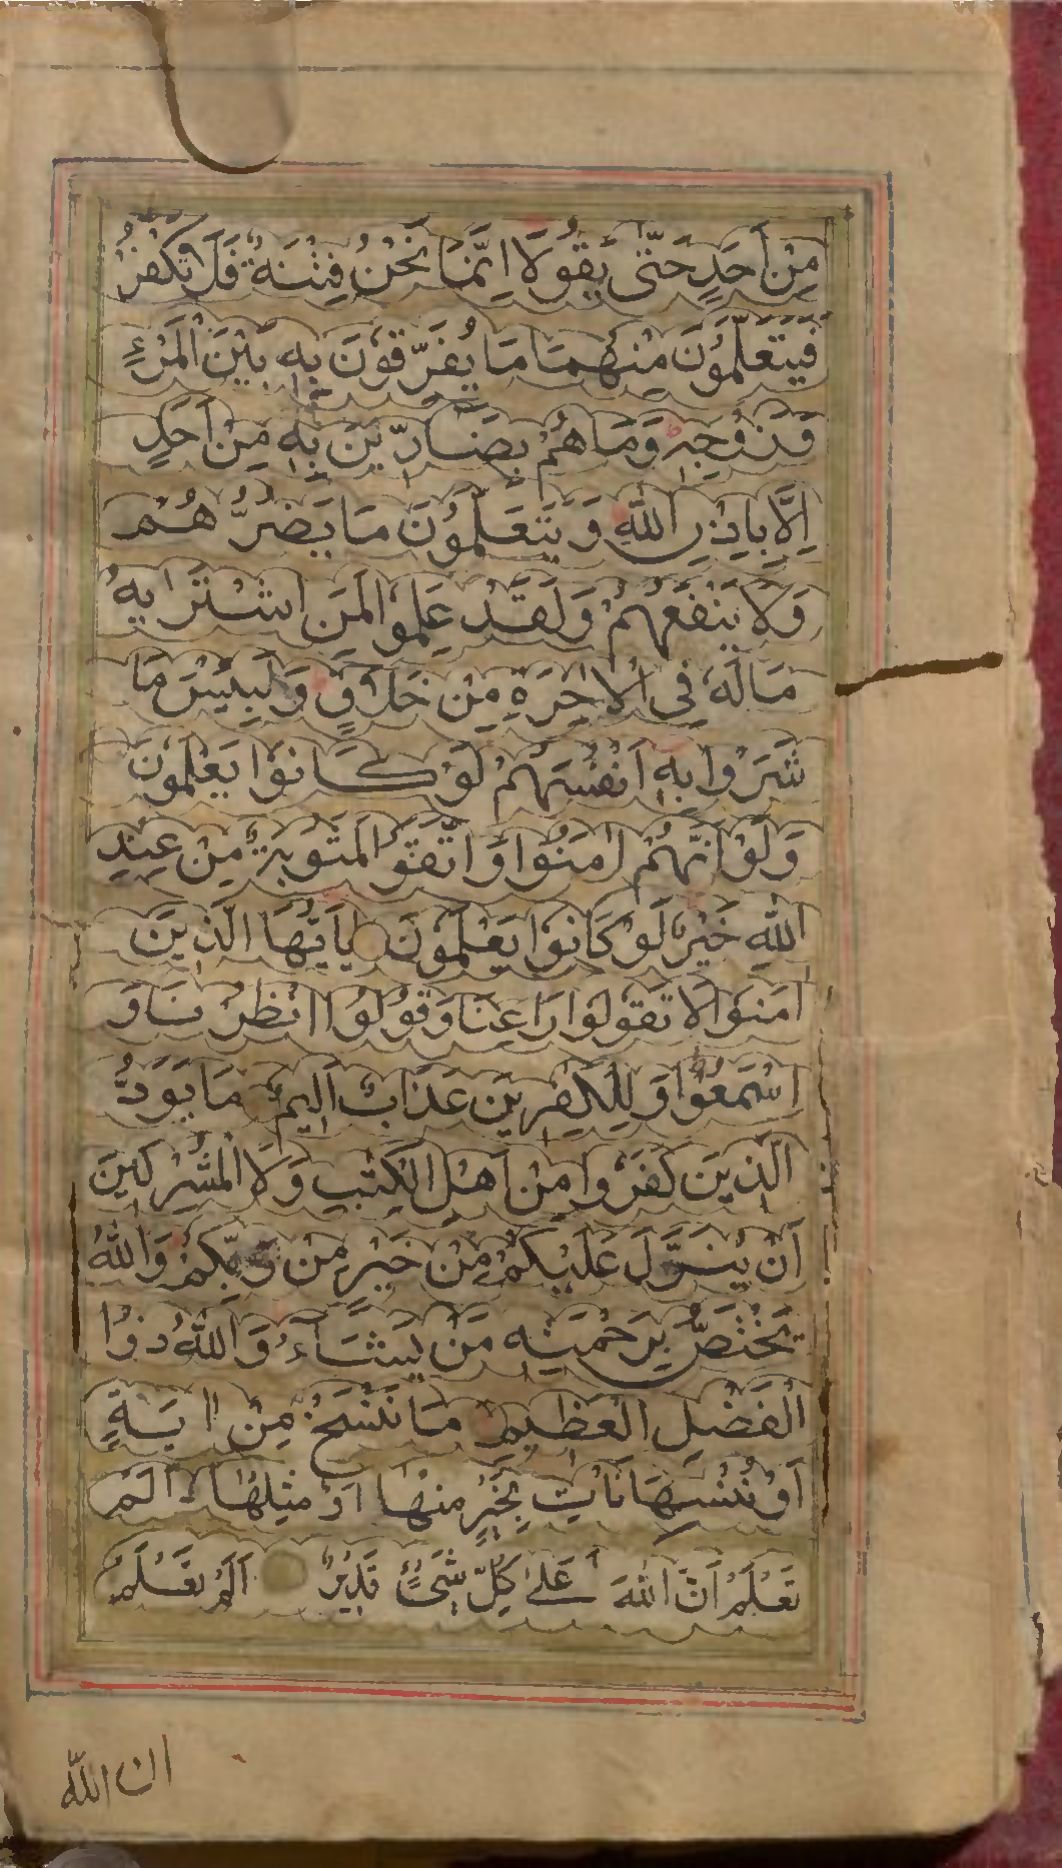 مِنْ أَحَدٍ حَتّٰى يَقُولَا اِنَّمَا نَحْنُ فِتْنَةٌ فَلَا تَكْفُرْ
فَيَتَعَلَّمُونَ مِنْهُمَا مَا يُفَرِّقُونَ بِهٖ بَيْنَ الْمَرْءِ
وَزَوْجِهٖ وَمَا هُمْ بِضَارِّينَ بِهٖ مِنْ اَحَدٍ
اِلَّا بِاِذْنِ اللّٰهِ وَيَتَعَلَّمُونَ مَا يَضُرُّهُمْ
وَلَا يَنْفَعُهُمْ وَلَقَدْ عَلِمُوا لَمَنِ اشْتَرٰيهُ
مَا لَهٗ فِي الْاٰخِرَةِ مِنْ خَلَاقٍ وَلَبِئْسَ مَا
شَرَوْا بِهٖ اَنْفُسَهُمْ لَوْ كَانُوا يَعْلَمُونَ
وَلَوْ اَنَّهُمْ اٰمَنُوا وَاتَّقَوْا لَمَثُوبَةٌ مِنْ عِنْدِ
اللّٰهِ خَيْرٌ لَوْ كَانُوا يَعْلَمُونَ يٰاَيُّهَا الَّذِينَ
اٰمَنُوا لَا تَقُولُوا رَاعِنَا وَقُولُوا انْظُرْنَا وَ
اسْمَعُوا وَلِلْكٰفِرِينَ عَذَابٌ اَلِيمٌ مَا يَوَدُّ
الَّذِينَ كَفَرُوا مِنْ اَهْلِ الْكِتٰبِ وَلَا الْمُشْرِكِينَ
اَنْ يُنَزَّلَ عَلَيْكُمْ مِنْ خَيْرٍ مِنْ رَبِّكُمْ وَاللّٰهُ
يَخْتَصُّ بِرَحْمَتِهٖ مَنْ يَشَآءُ وَاللّٰهُ ذُوا
الْفَضْلِ الْعَظِيمِ مَا نَنْسَخْ مِنْ اٰيَةٍ
اَوْ نُنْسِهَا نَأْتِ بِخَيْرٍ مِنْهَا اَوْ مِثْلِهَا اَلَمْ
تَعْلَمْ اَنَّ اللّٰهَ عَلٰى كُلِّ شَيْءٍ قَدِيرٌ اَلَمْ تَعْلَمْ
ان اللّٰه